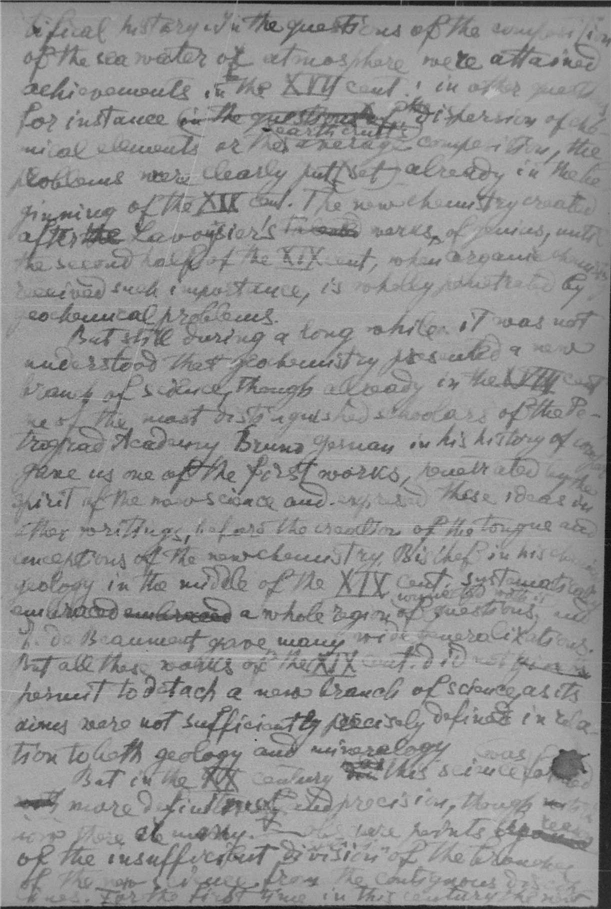 tifical history in the questions of the composition
of the sea water or atmosphere were attained
achievements in the XVII cent.; in other
for instance in the questions of the dispersion of che-
mical elements or the average composition, the
earth crust's
problems were clearly put (set) already in the be
ginning of the XIX cent. The new chemistry created
after the Lavoisier's works, of genius, until
the second half of the XIX cent, when organic
received such importance, is wholly penetrated by
geochemical problems.
But still during a long while it was not
understood that geochemistry presented a new
branch of science, though already in the XVIII cent
ne of the most distinguished schoolars of the Pe-
trograd Academy Bruno german in his history of
gave us one of the first works, penetrated by the
spirit of the new science and expressed these ideas in
other writings, before the creation of the tongue and
conceptions of the new chemistry. Bischof in his
geology in the middle of the XIX cent. systematically
connected with it
embraced embraced a whole region of questions, and
de Beaumont gave many wide generalizations.
But all these works of the XIX cent. did not
permit to detach a new branch of science, as its
aims were not sufficiently precisely defined in rela-
tion to both geology and mineralogy
But in the XX century this science
was
more and precision, though
now there are many points
of the insufficient division of the branches
of the new science from the contiguous
For the first time in this century the new